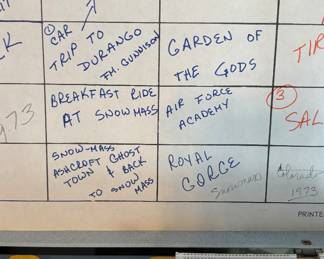 ① CAR
TRIP TO
DURANGO
FM. GUNNISON
GARDEN OF
THE GODS
TIR
K
BREAKFAST RIDE
AT SNOWMASS
AIR FORCE
ACADEMY
③
SAL
973
SNOW-MASS
ASHCROFT GHOST
TOWN & BACK
TO SNOW
MASS
ROYAL
GORGE
Snowmass
Colorado
1973
PRINTE